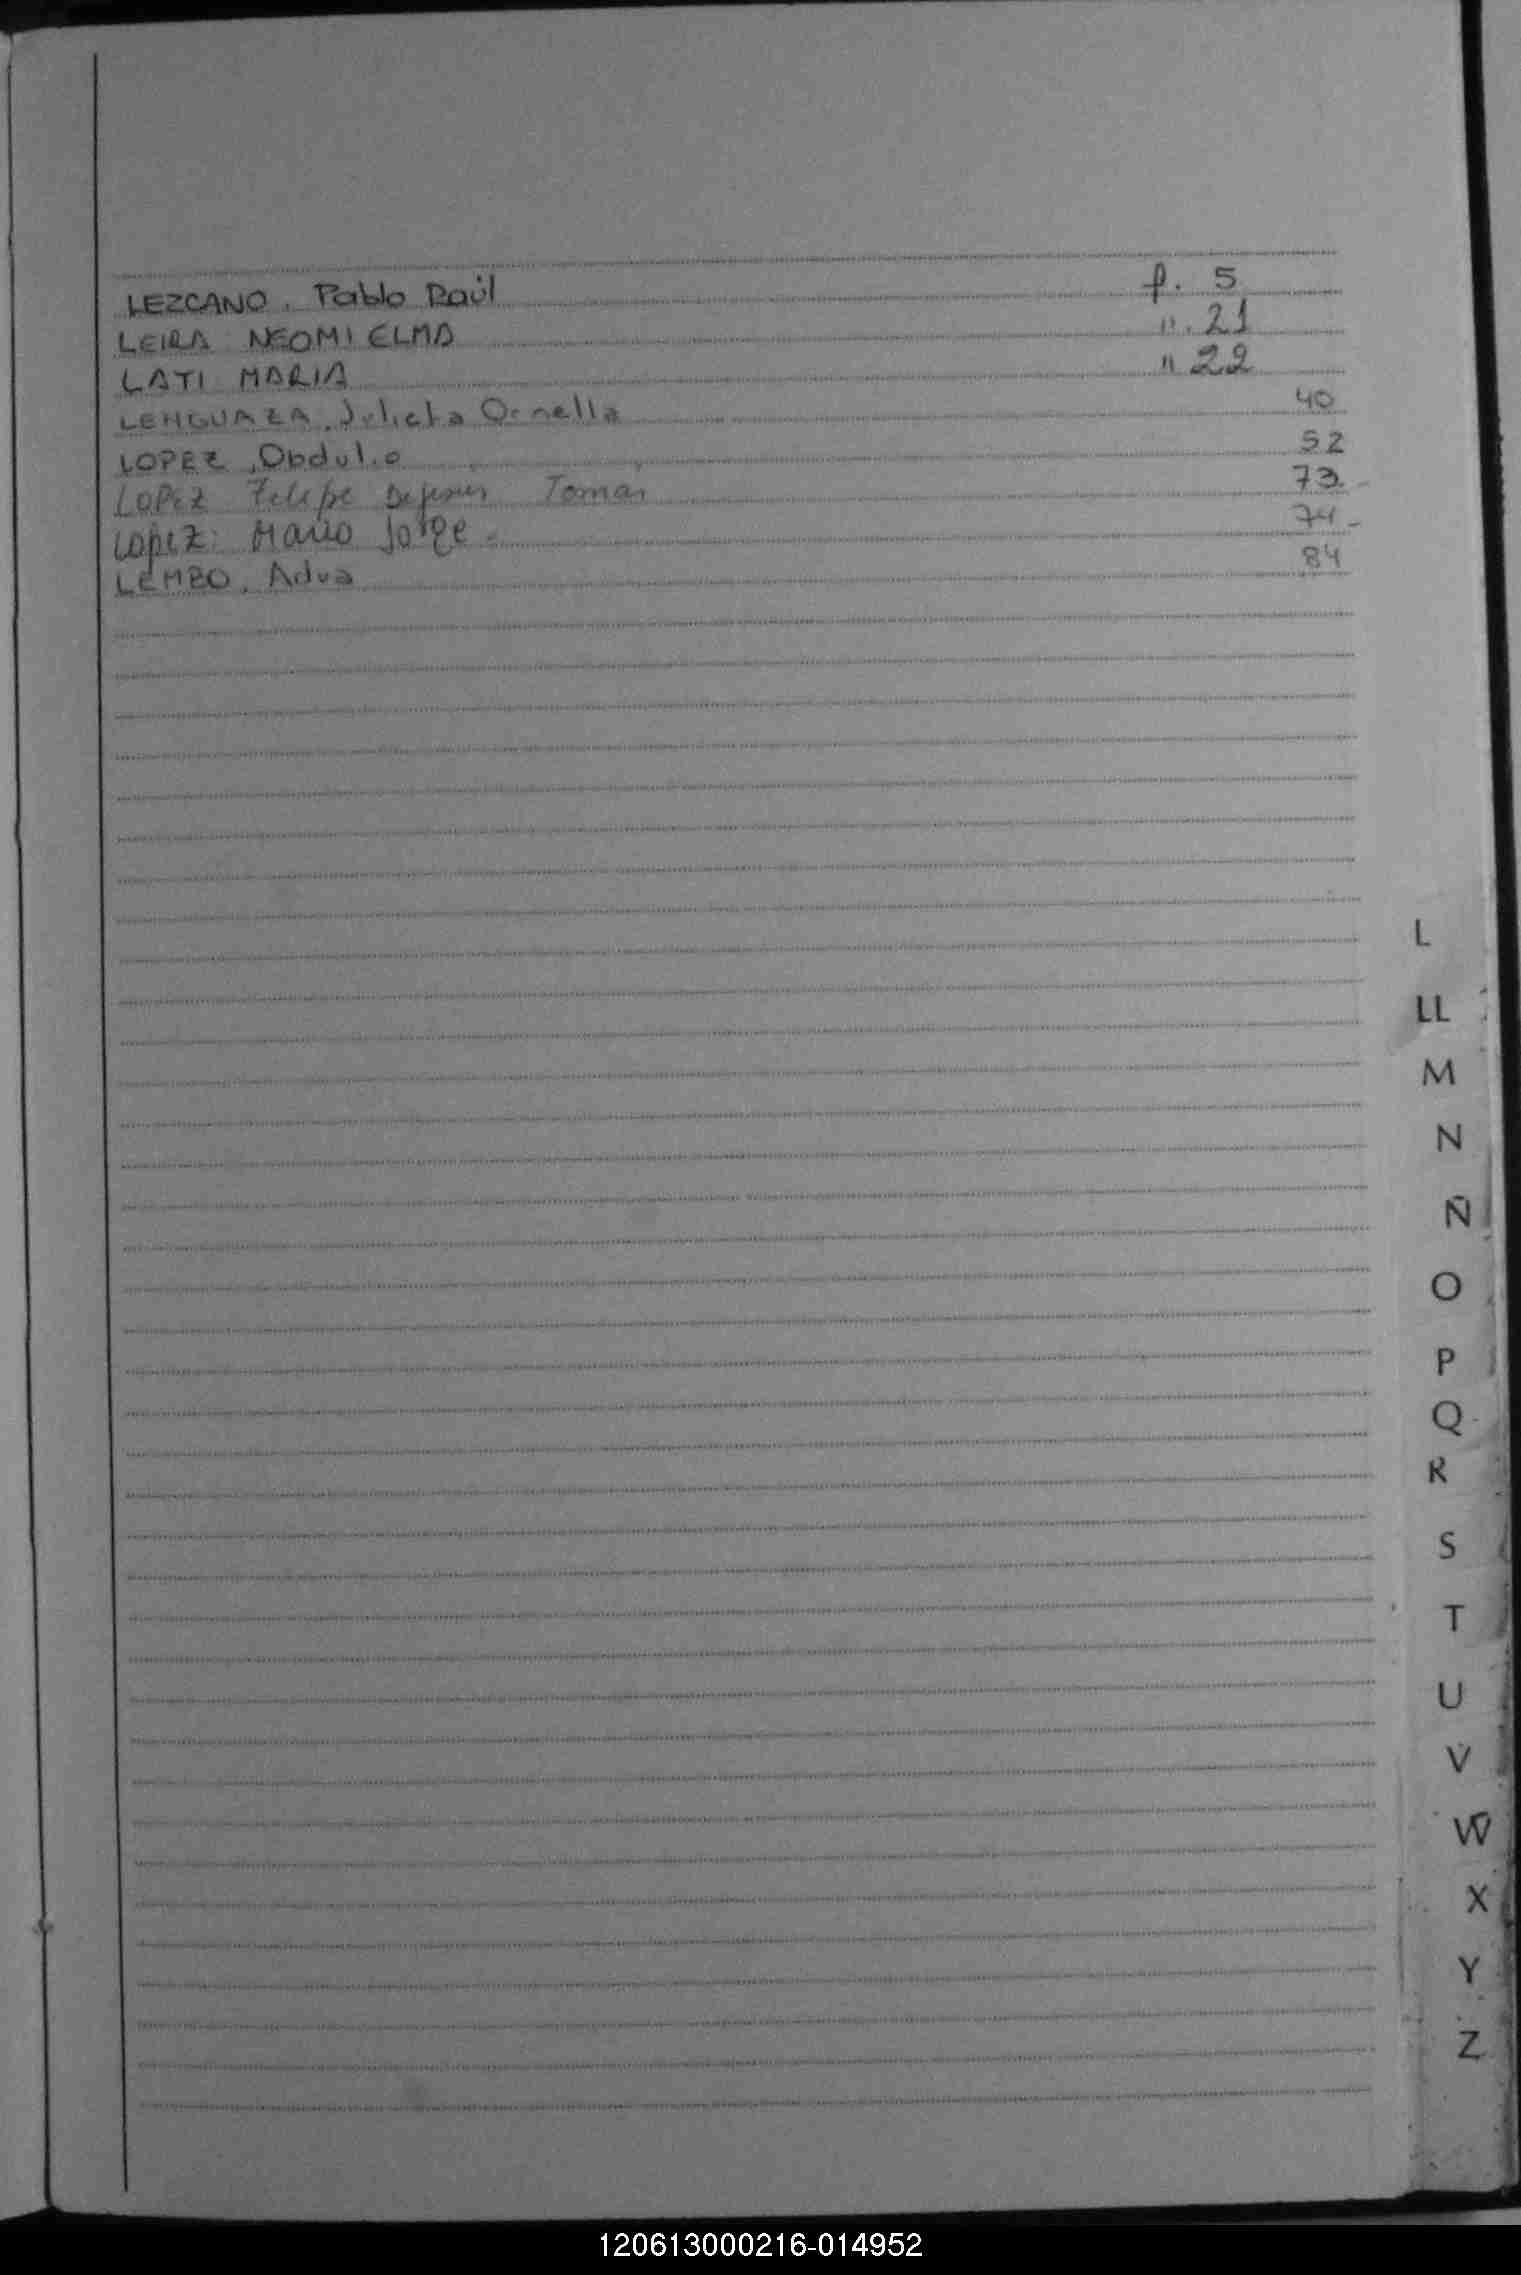 LEZCANO, Pablo Raúl f. 5
LEIRA NEOMI ELMA ". 21
LATI MARIA " 22
LENGUAZA, Julieta Ornella 40
LOPEZ, Obdulio 52
LOPEZ Felipe Dejesus Tomas 73
LopEZ: Mario Jorge - 74
LEMBO, Adua 84
L
LL
M
N
Ñ
O
P
Q
R
S
T
U
V
W
X
Y
Z
120613000216-014952